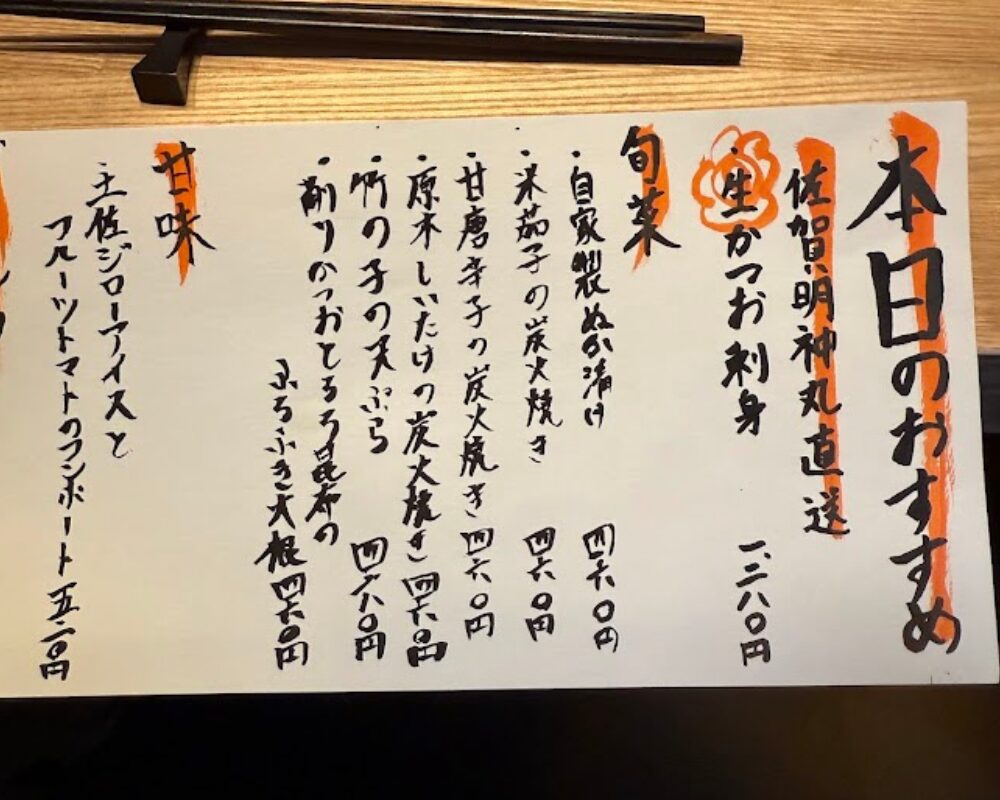 本日のおすすめ
佐賀明神丸直送
・生かつお刺身 一、二八〇円
旬菜
・自家製ぬか漬け 四六〇円
・米茄子の炭火焼き 四六〇円
・甘唐辛子の炭火焼き 四六〇円
・原木しいたけの炭火焼き 四六〇円
・竹の子の天ぷら 四六〇円
・削りかつおととろろ昆布の
ふろふき大根 四六〇円
甘味
・土佐ジローアイスと
フルーツトマトのコンポート 五二〇円